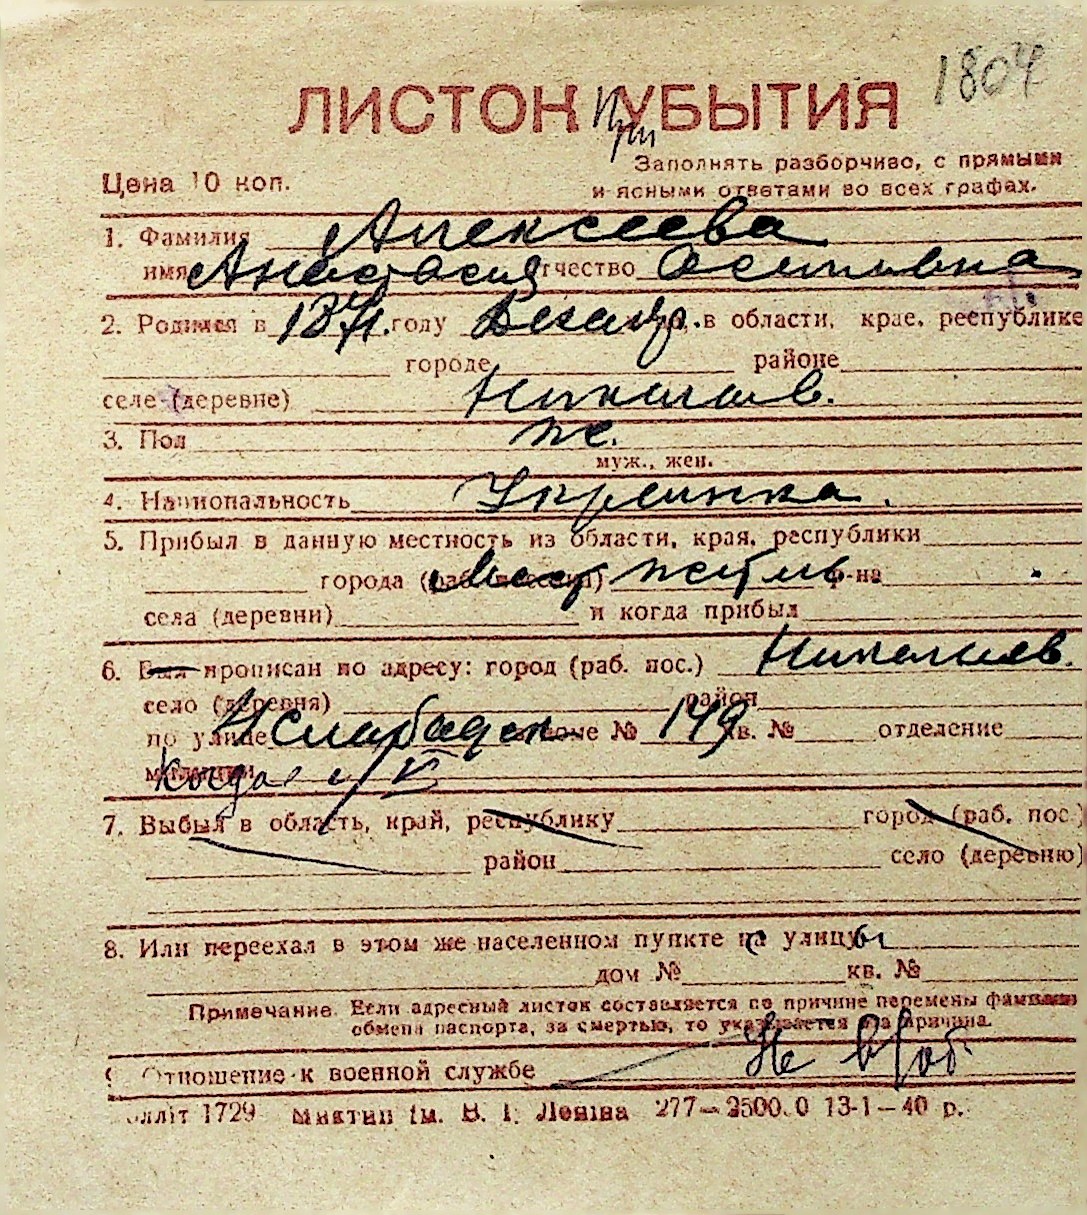 1804
ЛИСТОК При УБЫТИЯ
Заполнять разборчиво, с прямыми
Цена 10 коп.
и ясными ответами во всех графах.
1. Фамилия Алексеева
имя Анастасия отчество Осиповна
2. Родился в 1871 году в области, крае, республике
городе районе
селе (деревне) Николаев.
3. Пол ж.
муж., жен.
4. Национальность Укрлинка.
5. Прибыл в данную местность из области, края, республики
города (раб. поселка) Мест житль р-на
села (деревни) и когда прибыл
6. Был прописан по адресу: город (раб. пос.) Николаев.
село (деревня) район
по улице Н Слабадск доме № 149 кв. № отделение
милиции когда
7. Выбыл в область, край, республику город (раб. пос.)
район село (деревню)
8. Или переехал в этом же населенном пункте с улицы
дом № кв. №
Примечание. Если адресный листок составляется по причине перемены фамилии
обмена паспорта, за смертью, то указывается эта причина.
9. Отношение к военной службе Не в/об.
1729 ім. В. І. Леніна 277—2500.0 13-1-40 р.